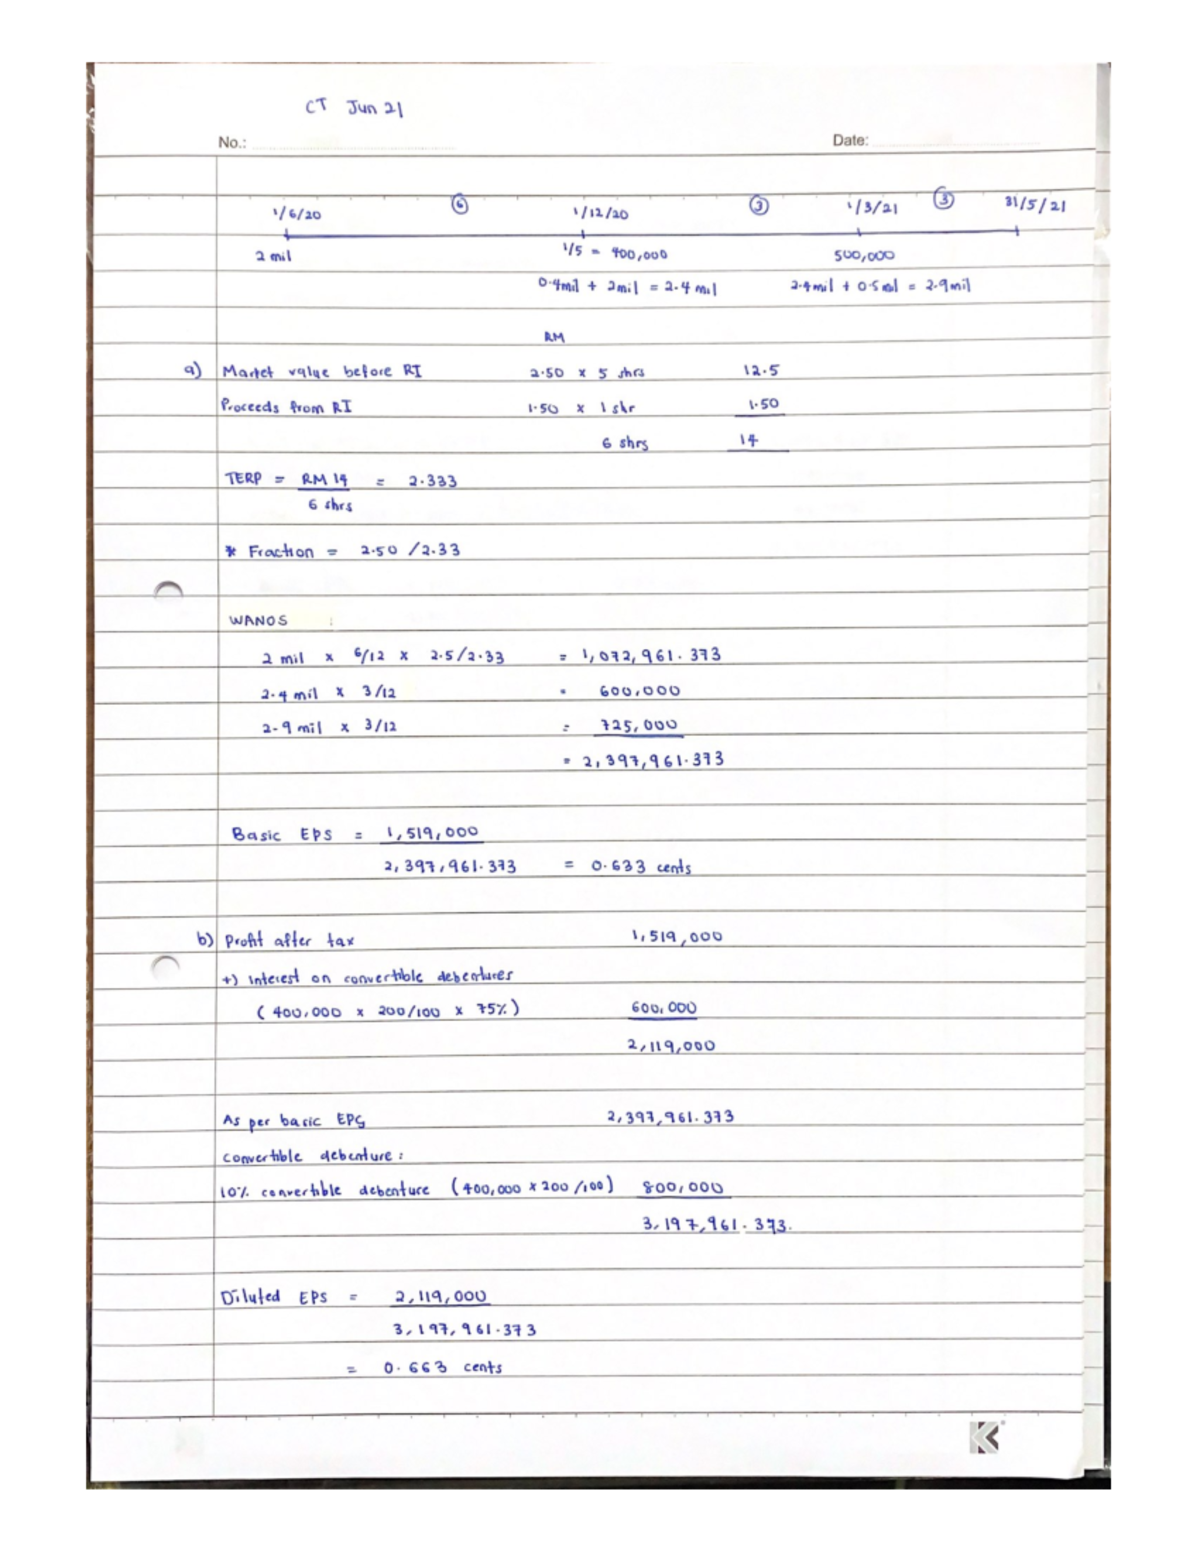 CT Jun 21
No.: Date:
1/6/20 6 1/12/20 3 1/3/21 3 31/5/21
2 mil 1/5 = 400,000 500,000
0.4mil + 2mil = 2.4 mil 2.4mil + 0.5mil = 2.9mil
RM
a) Market value before RI 2.50 x 5 shrs 12.5
Proceeds from RI 1.50 x 1 shr 1.50
6 shrs 14
TERP = RM 14 = 2.333
6 shrs
* Fraction = 2.50 / 2.33
WANOS :
2 mil x 6/12 x 2.5/2.33 = 1,072,961.373
2.4 mil x 3/12 = 600,000
2.9 mil x 3/12 = 725,000
= 2,397,961.373
Basic EPS = 1,519,000
2,397,961.373 = 0.633 cents
b) Profit after tax 1,519,000
+) Interest on convertible debentures
(400,000 x 200/100 x 75%) 600,000
2,119,000
As per basic EPS 2,397,961.373
Convertible debenture :
10% convertible debenture (400,000 x 200/100) 800,000
3,197,961.373.
Diluted EPS = 2,119,000
3,197,961.373
= 0.663 cents